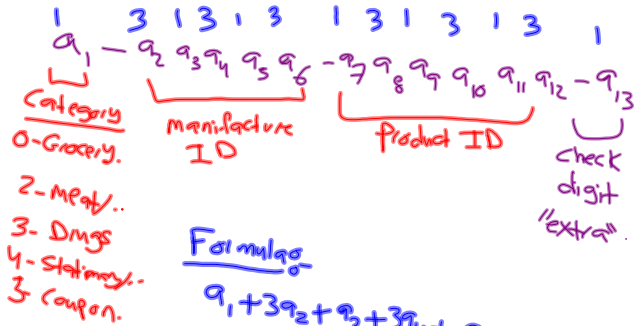 1 3 1 3 1 3 1 3 1 3 1 3 1
a1 - a2 a3 a4 a5 a6 - a7 a8 a9 a10 a11 a12 - a13
Category
0-Grocery.
2-Meat/..
3-Drugs
4-Stationary/..
5-Coupon.
manifacture
ID
Product ID
check
digit
"extra"
Formula:
a1+3a2+a3+3a4+